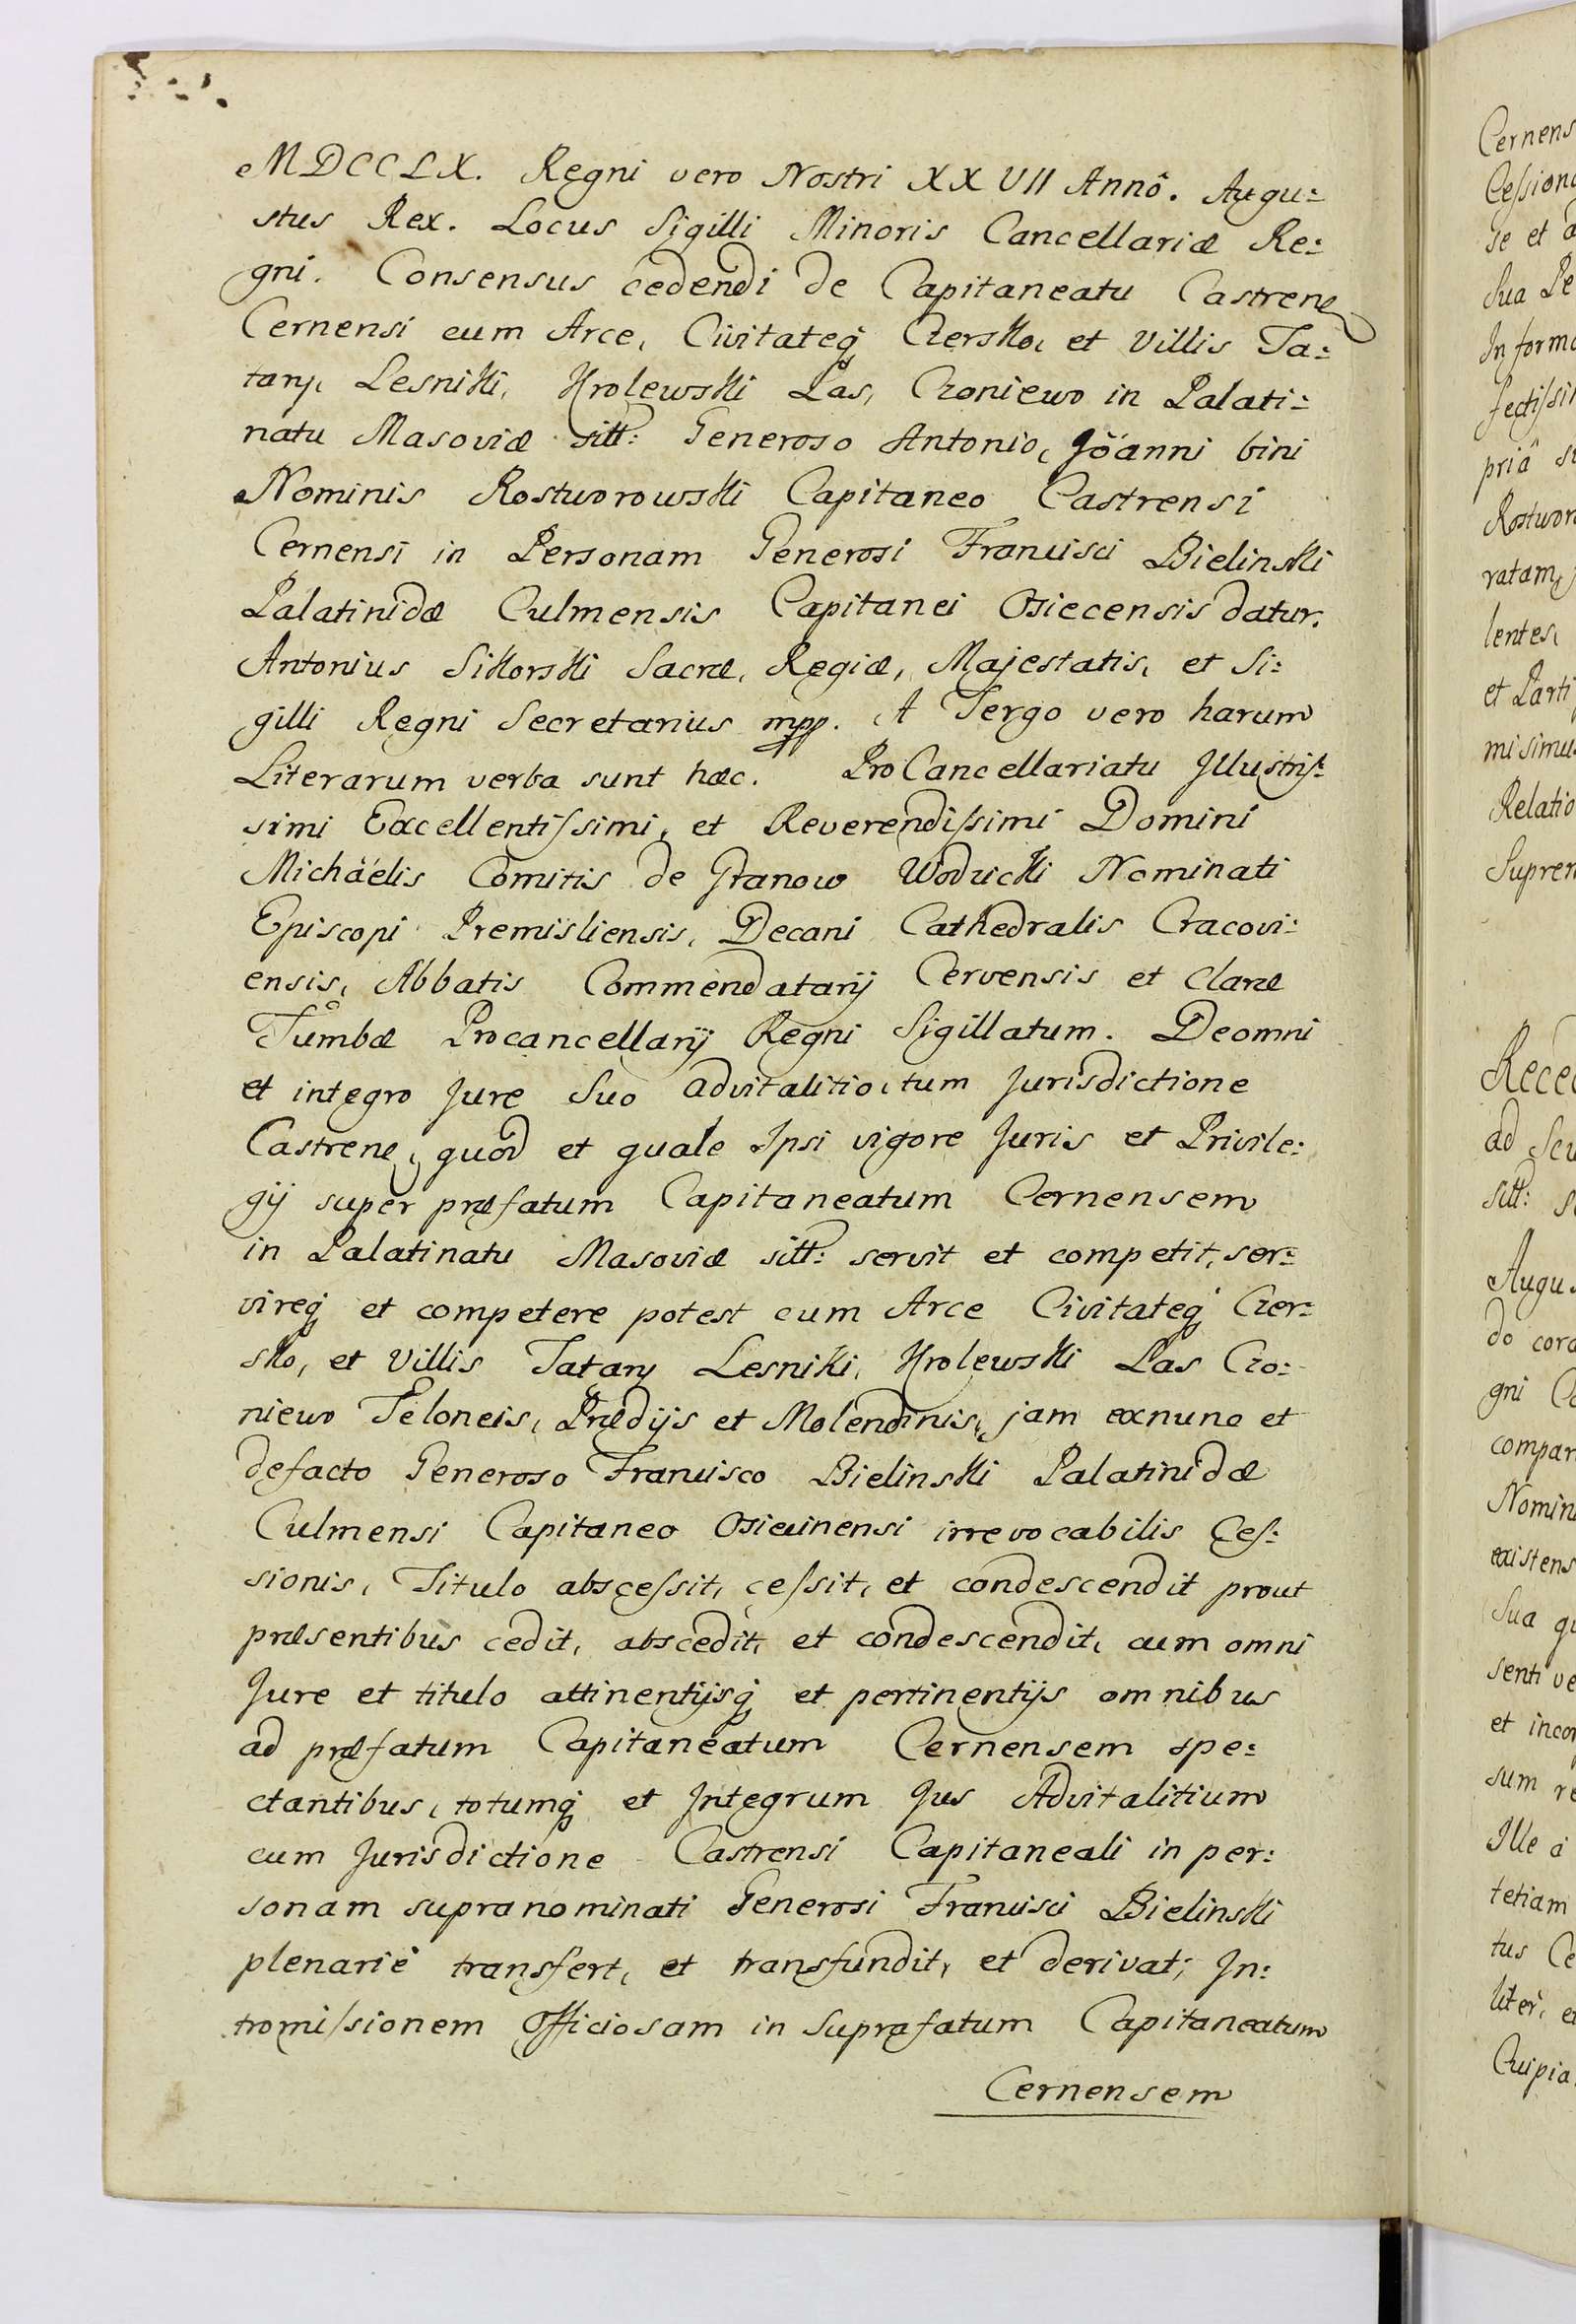 MDCCLX. Regni vero Nostri XXVII Annô. Augu:
stus Rex. Locus Sigilli Minoris Cancellariæ Re:
gni. Consensus cedendi de Capitaneatu Castren
Cernensi cum Arce, Civitateq Czersko, et Villis Ta:
tary, Lesniki, Krolewski Las, Czoniewo in Palati:
natu Masoviæ sitt: Generoso Antonio, Jöanni bini
Nominis Rostworowski Capitaneo Castrensi
Cernensi in Personam Generosi Francisci Bielinski
Palatinidæ Culmensis Capitanei Osiecensis datur.
Antonius Sikorski Sacræ, Regiæ, Majestatis, et Si:
gilli Regni Secretarius mpp. A Tergo vero harum
Literarum verba sunt hæc. ProCancellariatu Jllustriſ:
simi Excellentiſsimi, et Reverendiſsimi Domini
Michäelis Comitis de Granow Wodzicki Nominati
Episcopi Premisliensis, Decani Cathedralis Cracovi:
ensis, Abbatis Commendatarij Cervensis et Claræ
Tumbæ Procancellarij Regni Sigillatum. Deomni
et integro Jure Suo advitalitio, tum Jurisdictione
Castren, quod et quale Ipsi vigore Juris et Privile:
gij super præfatum Capitaneatum Cernensem
in Palatinatu Masoviæ sitt: servit et competit, ser:
vireq et competere potest cum Arce Civitateq Czer:
sko, et Villis Tatary Lesniki, Krolewski Las Czo:
niewo Teloneis, Prædijs et Molendinis, jam exnunc et
defacto Generoso Francisco Bielinski Palatinidæ
Culmensi Capitaneo Osiecinensi irrevocabilis Ceſ:
sionis, Titulo absceſsit, ceſsit, et condescendit prout
præsentibus cedit, abscedit, et condescendit, cum omni
Jure et titulo attinentijsq et pertinentijs omnibus
ad præfatum Capitaneatum Cernensem spe:
ctantibus, totumq et Jntegrum Jus Advitalitium
cum Jurisdictione Castrensi Capitaneali in per:
sonam supranominati Generosi Francisci Bielinski
plenariè transfert, et transfundit, et derivat; Jn:
tromiſsionem Officiosam in Suprafatum Capitaneatum
Cernensem
Cernens
Ceſsiona
se et a
Sua Pe
Informa
fectiſsi
priâ su
Rostwor
ratam,
lentes,
et Parti
misimus
Relatio
Suprem
Rece
ad Scu
sitt: s
Augu
do cora
gni Ca
compar
Nomin
existens
Sua qu
senti ve
et incor
sum re
Ille á
tetiam
tus Ce
liter, ex
Cuipia